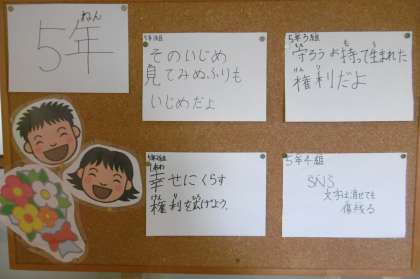 ねん
5年
そのいじめ
見てみぬふりも
いじめだよ
5年3組
守ろうよ持って生まれた
権利だよ
幸せにくらす
権利を
5年4組
SNS
文字は消せても
傷残る